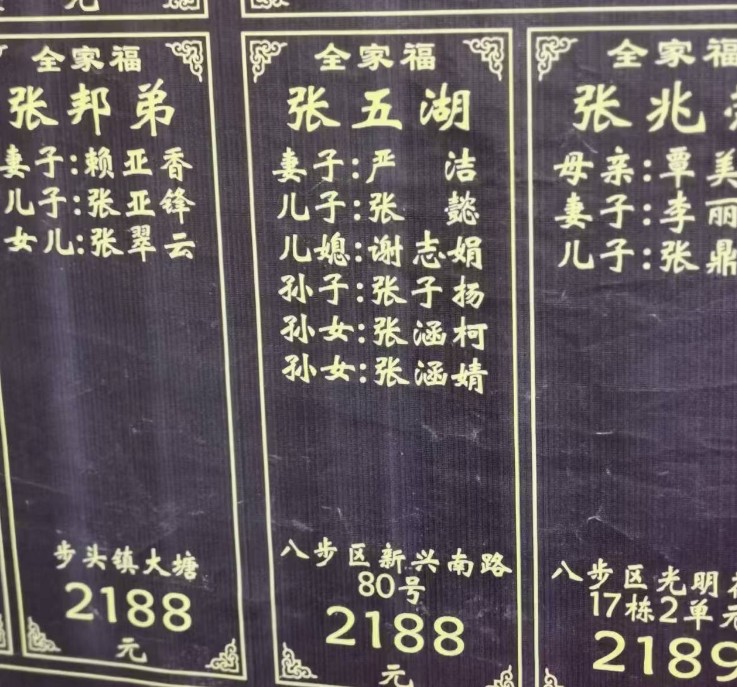 元
全家福
张邦弟
妻子:赖亚香
儿子:张亚锋
女儿:张翠云
步头镇大塘
2188
元
全家福
张五湖
妻子:严 洁
儿子:张 懿
儿媳:谢志娟
孙子:张子扬
孙女:张涵柯
孙女:张涵婧
八步区新兴南路
80号
2188
元
全家福
张兆
母亲:覃美
妻子:李丽
儿子:张鼎
八步区光明
17栋2单元
2189